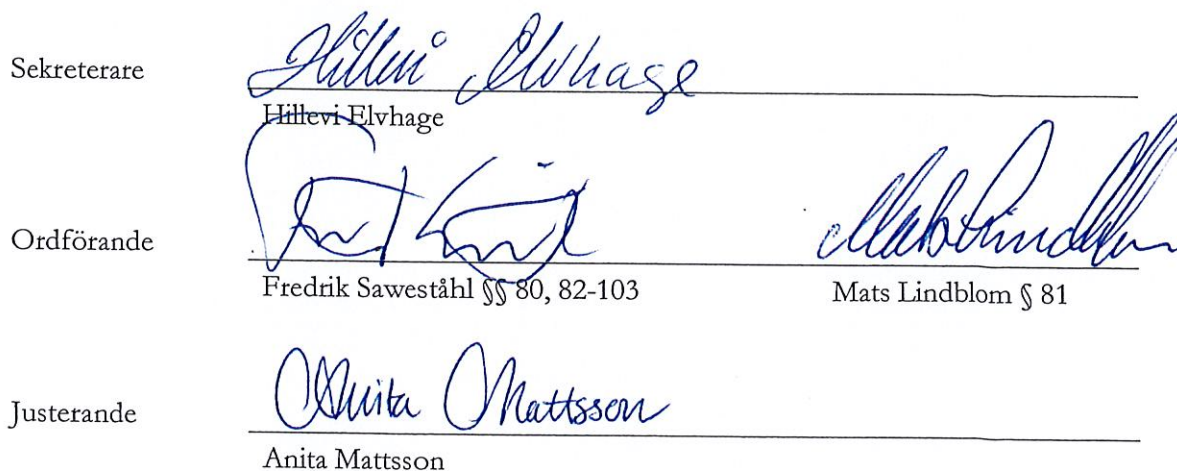 Sekreterare Hillevi Elvhage
Hillevi Elvhage
Ordförande Mats Lindblom
Fredrik Saweståhl §§ 80, 82-103 Mats Lindblom § 81
Justerande Anita Mattsson
Anita Mattsson